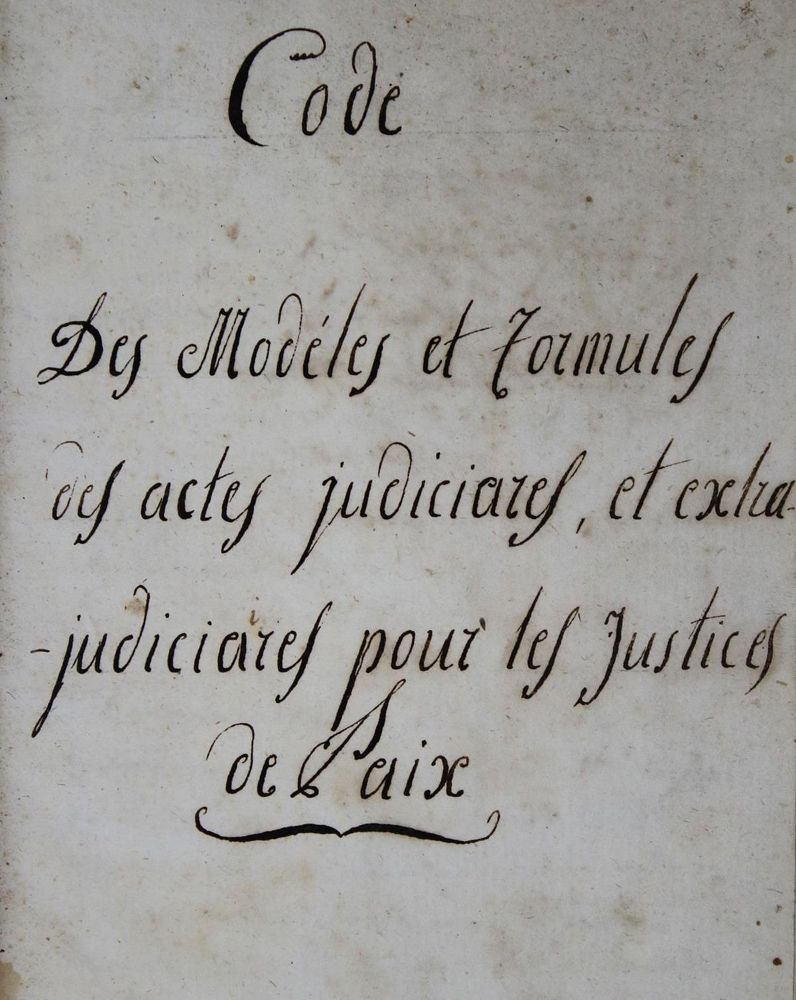 Code
Des Modéles et Formules
des actes judiciares, et extra-
-judiciares pour les Justices
de Paix